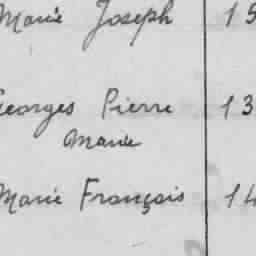 Marie Joseph 15
Georges Pierre 13
Marie
Marie François 14